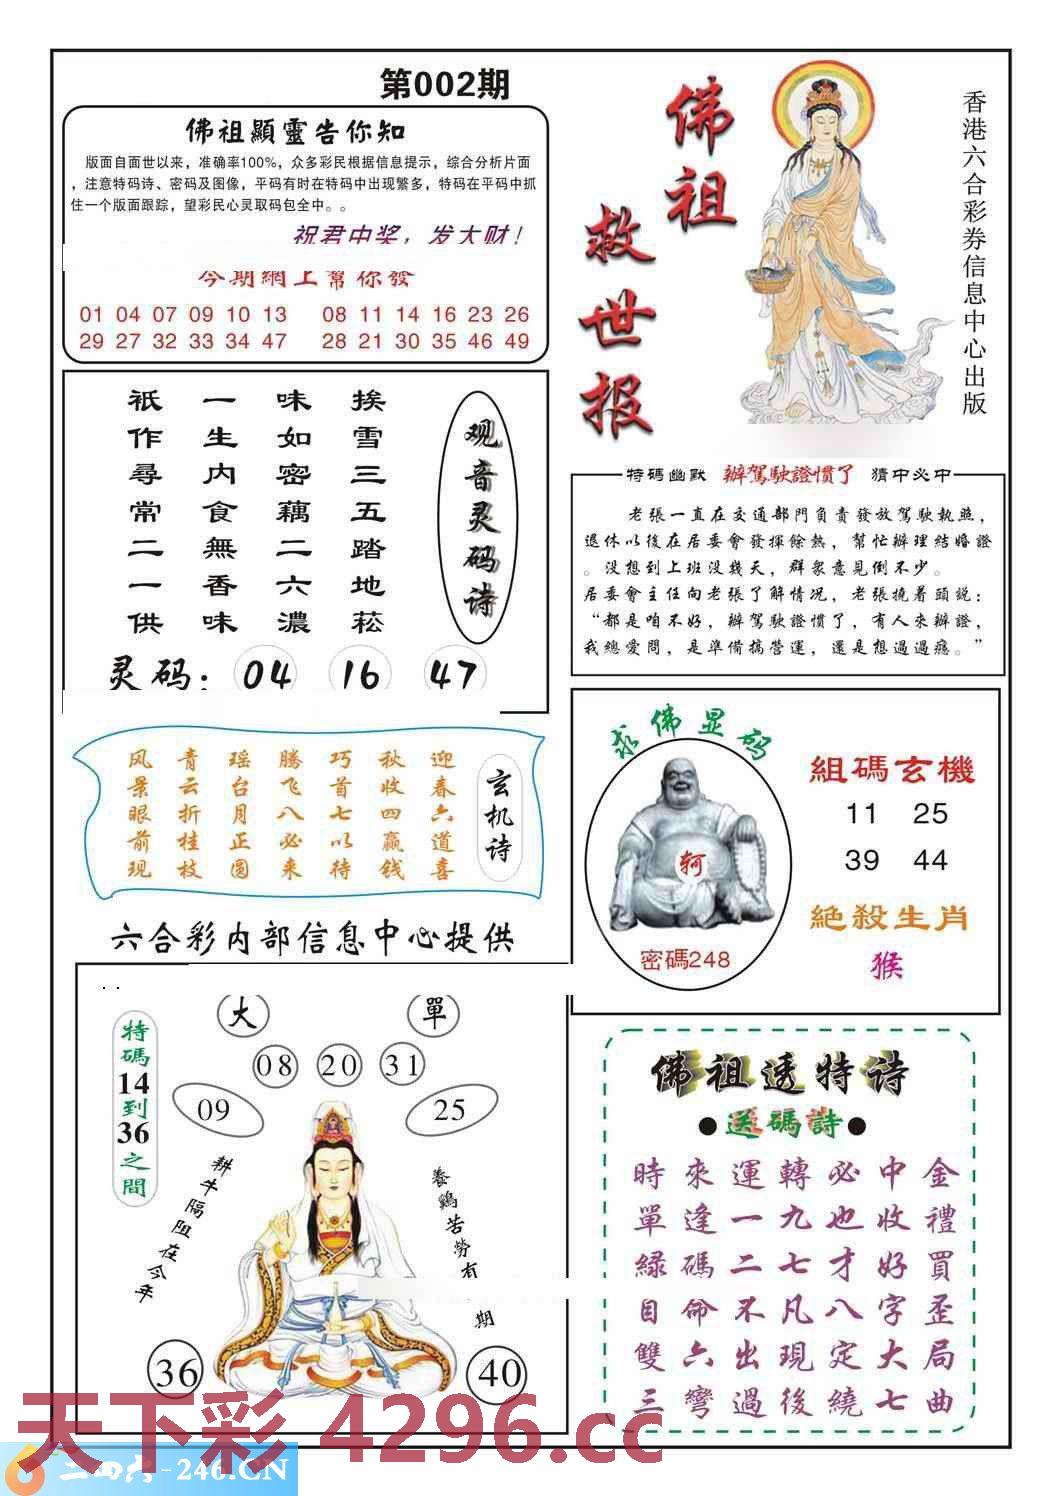 第002期
佛祖顯靈告你知
版面自面世以来，准确率100%，众多彩民根据信息提示，综合分析片面
，注意特码诗、密码及图像，平码有时在特码中出现繁多，特码在平码中抓
住一个版面跟踪，望彩民心灵取码包全中。。
祝君中奖，发大财！
今期網上幫你發
01 04 07 09 10 13 08 11 14 16 23 26
29 27 32 33 34 47 28 21 30 35 46 49
佛祖
救世报
香港六合彩券信息中心出版
观音灵码诗
挨雪三五踏地菘
味如密藕二六濃
一生内食無香味
祇作尋常二一供
灵码：04 16 47
特碼幽默 辦駕駛證慣了 猜中必中
老張一直在交通部門負責發放駕駛執照，
退休以後在居委會發揮餘熱，幫忙辦理結婚證
。没想到上班没幾天，群衆意見倒不少。
居委會主任向老張了解情况，老張撓着頭説：
“都是咱不好，辦駕駛證慣了，有人來辦證，
我總愛問，是準備搞營運，還是想過過癮。”
玄机诗
迎春六道喜
秋收四赢钱
巧首七以待
腾飞八必来
瑶台月正圆
青云折桂枝
风景眼前现
求佛显码
轲
密碼248
組碼玄機
11 25
39 44
絶殺生肖
猴
六合彩内部信息中心提供
特碼14到36之間
大 單
08 20 31
09 25
耕牛隔阻在今年
養鷄苦勞有
期
36 40
佛祖透特诗
●送碼詩●
時來運轉必中金
單逢一九也收禮
緑碼二七才好買
自命不凡八字歪
雙六出現定大局
三彎過後繞七曲
天下彩 4296.cc
二四六-246.CN